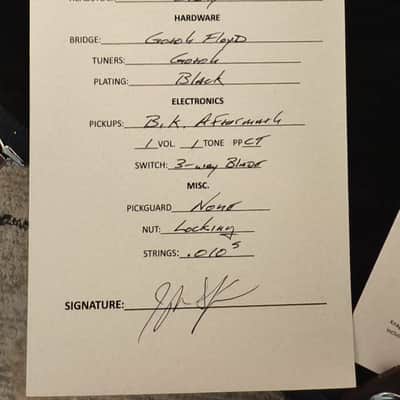 HARDWARE
BRIDGE: Gotoh Floyd
TUNERS: Gotoh
PLATING: Black
ELECTRONICS
PICKUPS: B.K. Aftermath
1 VOL. 1 TONE PP CT
SWITCH: 3-way Blade
MISC.
PICKGUARD None
NUT: Locking
STRINGS: .010s
SIGNATURE: